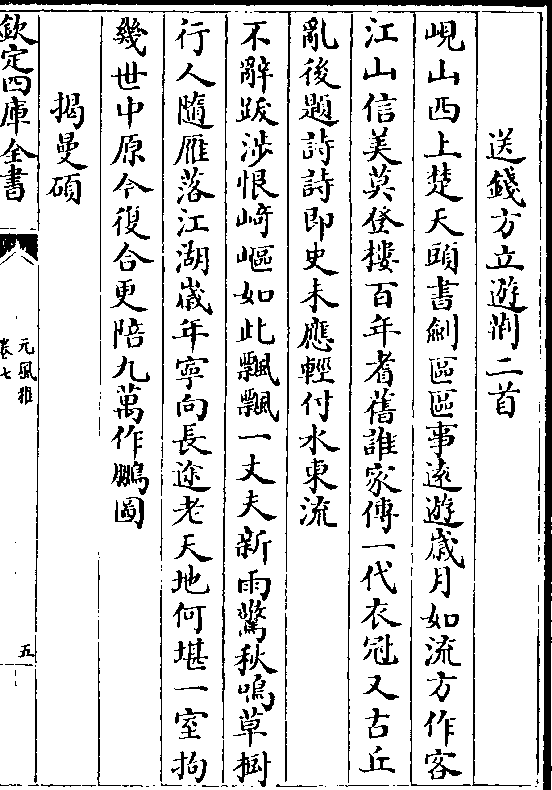 送錢方立遊淛二首
峴山西上楚天頭書劍區區事逺遊歲月如流方作客
江山信美莫登樓百年耆舊誰家傳一代衣冠又古丘
亂後題詩詩即史未應輕付水東流
不辭跋涉恨崎嶇如此飄飄一丈夫新雨驚秋鳴草樹
行人隨雁落江湖歲年寧向長途老天地何堪一室拘
幾世中原今復合更陪九萬作鵬圖
揭曼碩
欽定四庫全書
元風雅
卷七
五